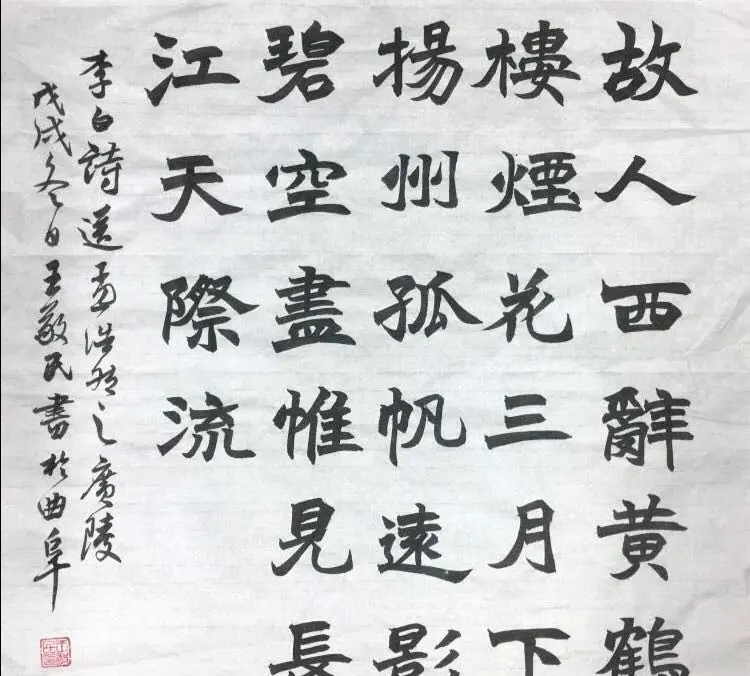 故人西辭黄鶴
樓煙花三月下
揚州孤帆遠影
碧空盡惟見長
江天際流
李白詩送孟浩然之廣陵
戊戌冬日王敬民書於曲阜